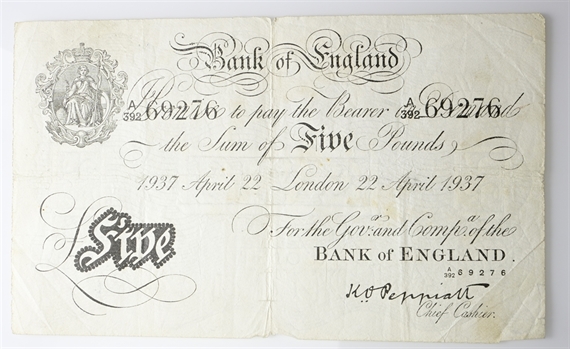 Bank of England
A/392 69276 to pay the Bearer on Demand A/392 69276
the Sum of Five Pounds
1937 April 22 London 22 April 1937
For the Govr. and Compa. of the
BANK OF ENGLAND.
A/392 69276
£ Five
K O Peppiatt
Chief Cashier.